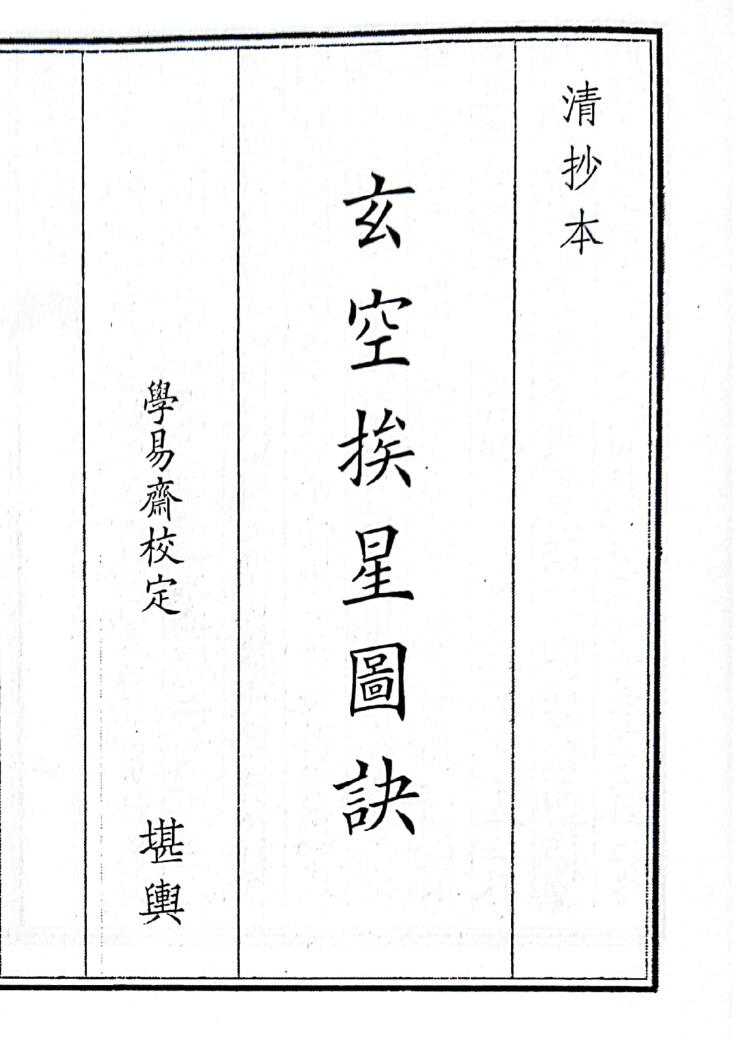 清抄本
玄空挨星圖訣
學易齋校定
堪輿